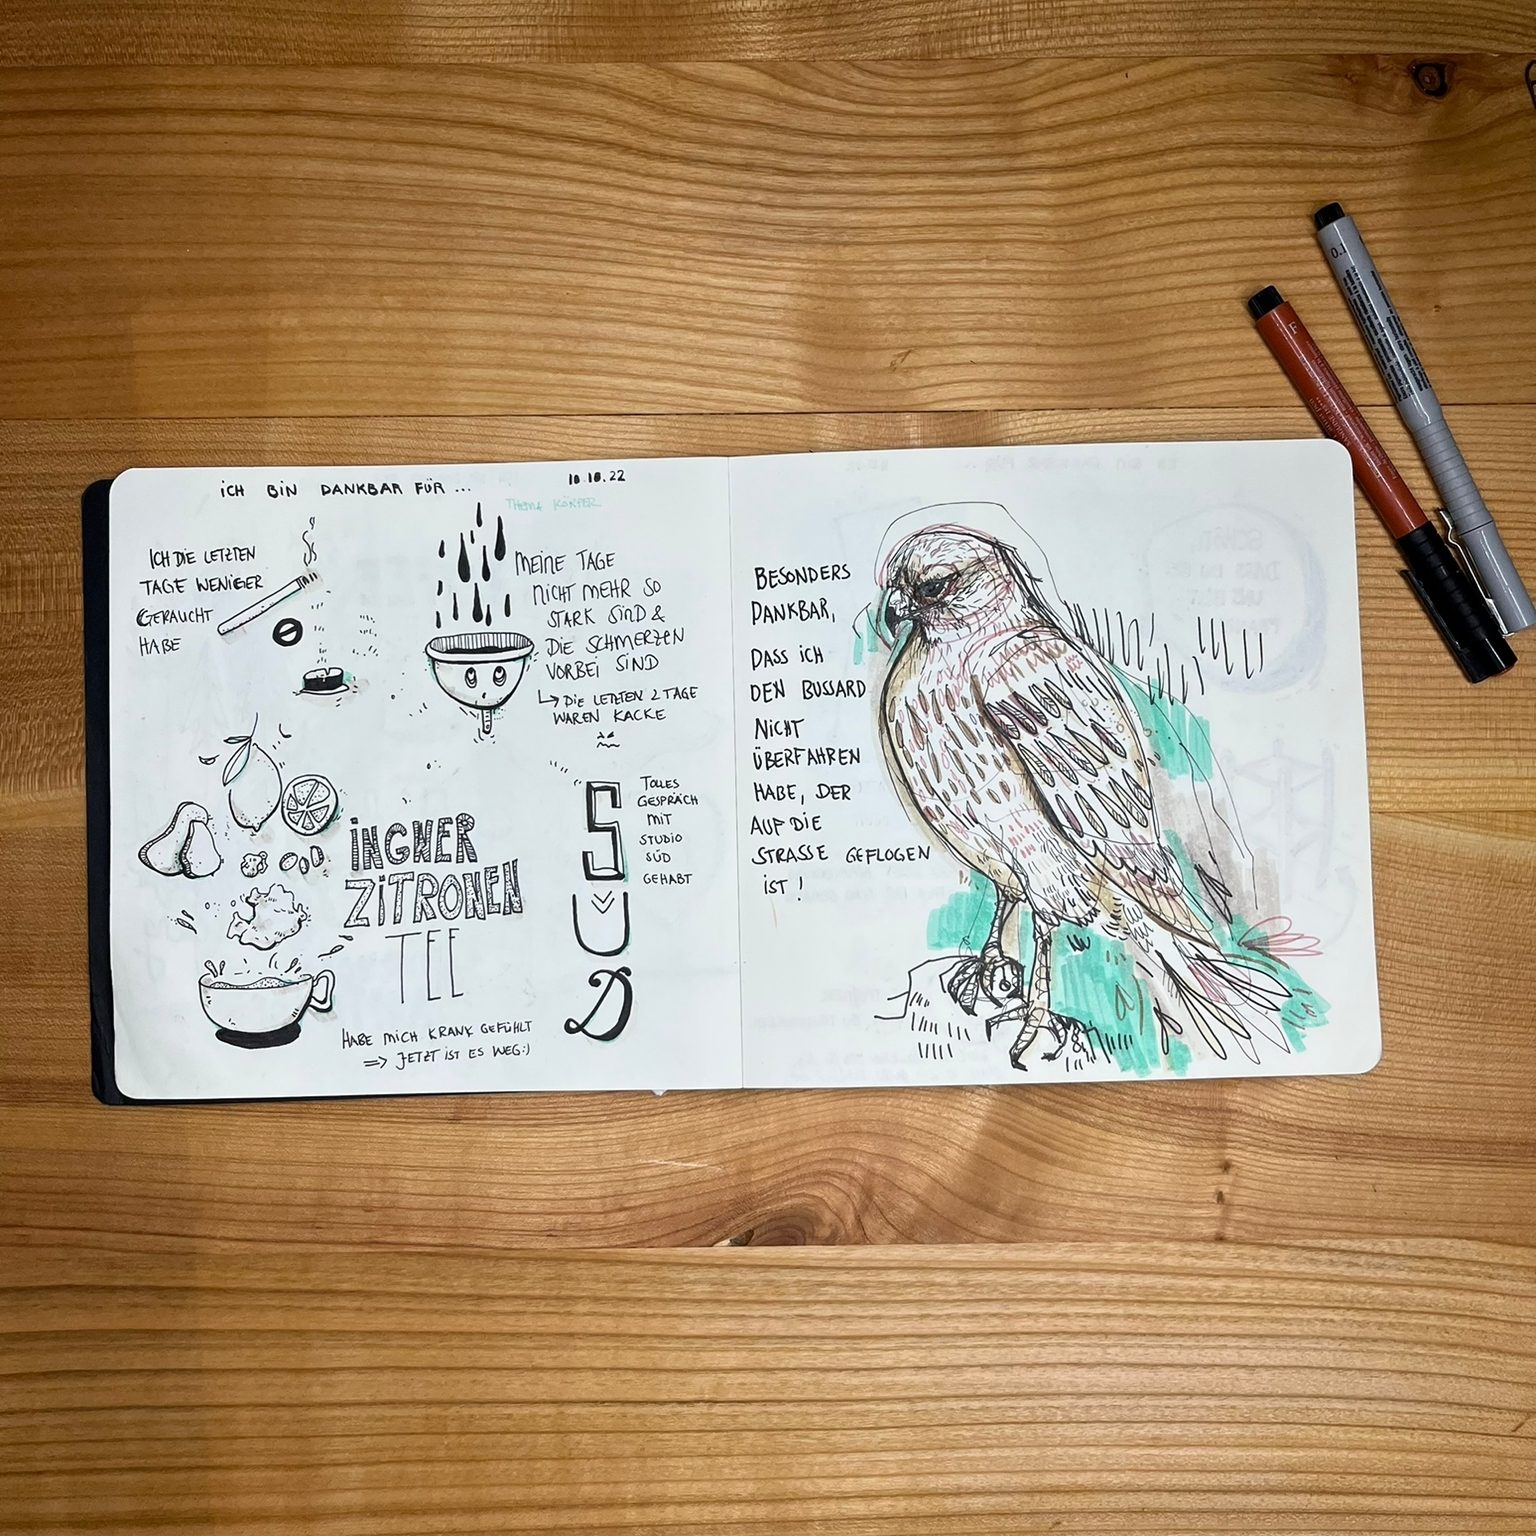 iCH BiN DANKBAR FÜR ...
10.10.22
THEMA KÖRPER
ICH DIE LETZTEN
TAGE WENIGER
GERAUCHT
HABE
MEINE TAGE
NICHT MEHR SO
STARK SIND &
DIE SCHMERZEN
VORBEI SIND
↳ DIE LETZTEN 2 TAGE
WAREN KACKE
iNGWER
ZiTRONEN
TEE
HABE MICH KRANK GEFÜHLT
=> JETZT IST ES WEG:)
S
Ü
D
TOLLES
GESPRÄCH
MIT
STUDIO
SÜD
GEHABT
BESONDERS
DANKBAR,
DASS iCH
DEN BUSSARD
NiCHT
ÜBERFAHREN
HABE, DER
AUF DIE
STRASSE GEFLOGEN
iST !
0.1
F